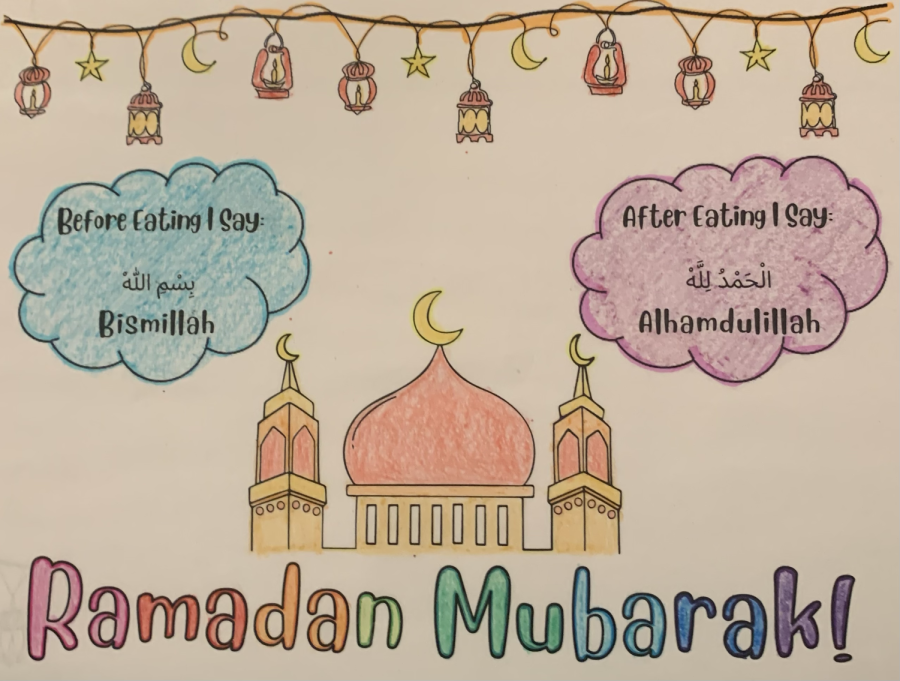 Before Eating I Say:
بِسْمِ اللّٰهْ
Bismillah
After Eating I Say:
الْحَمْدُ لِلَّهْ
Alhamdulillah
Ramadan Mubarak!